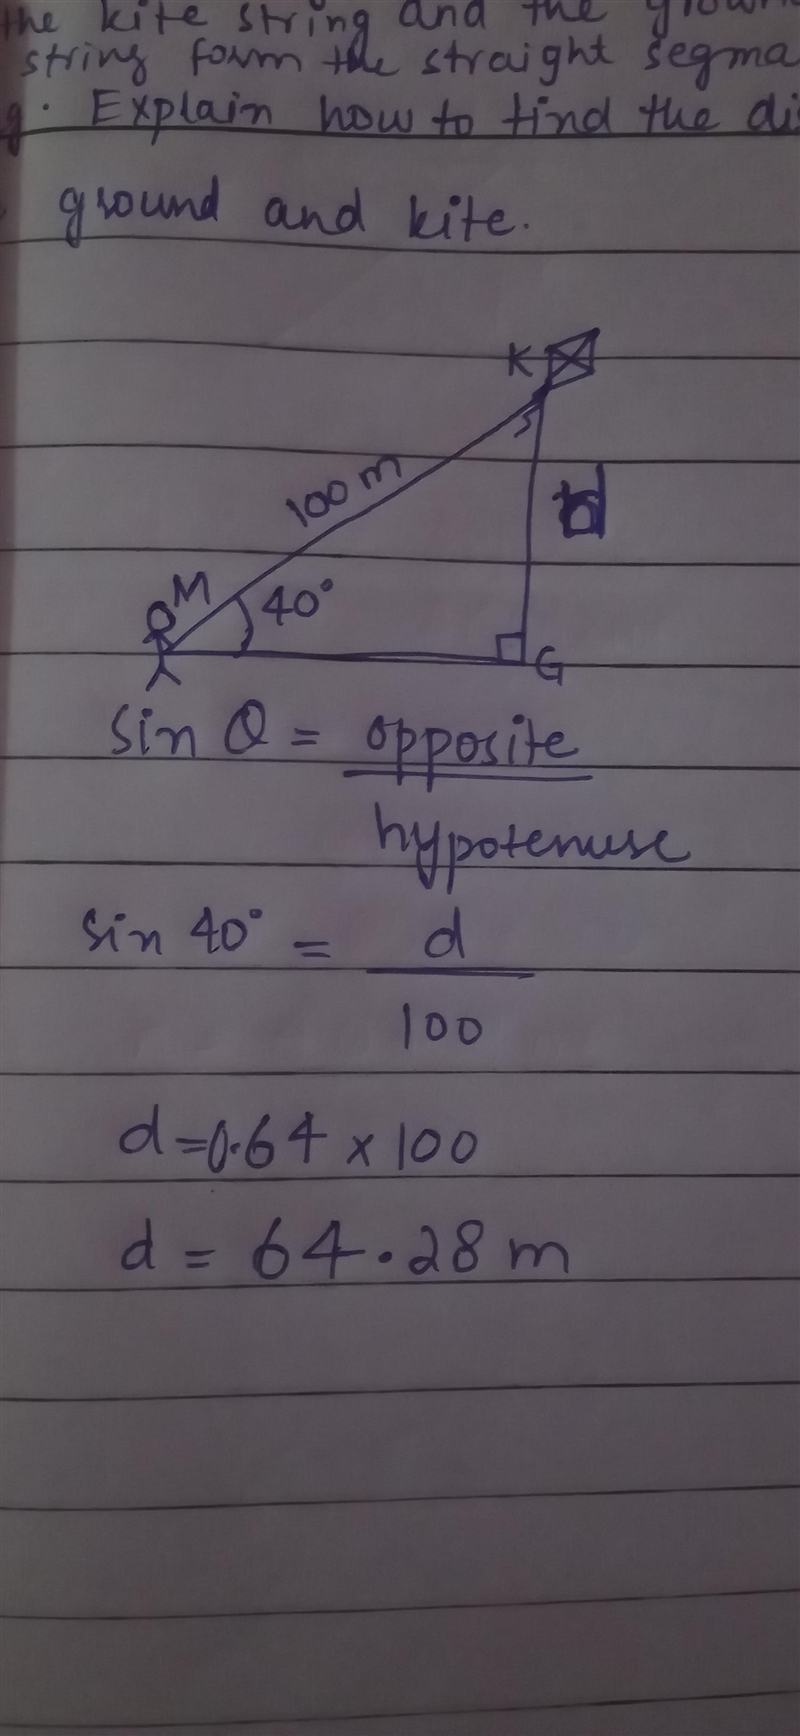 the kite string and the
string form the straight
Explain how to find the
ground and kite.
K
S
100 m
d
M
40°
G
sin θ = opposite
hypotenuse
sin 40° = d
100
d = 0.64 × 100
d = 64.28 m